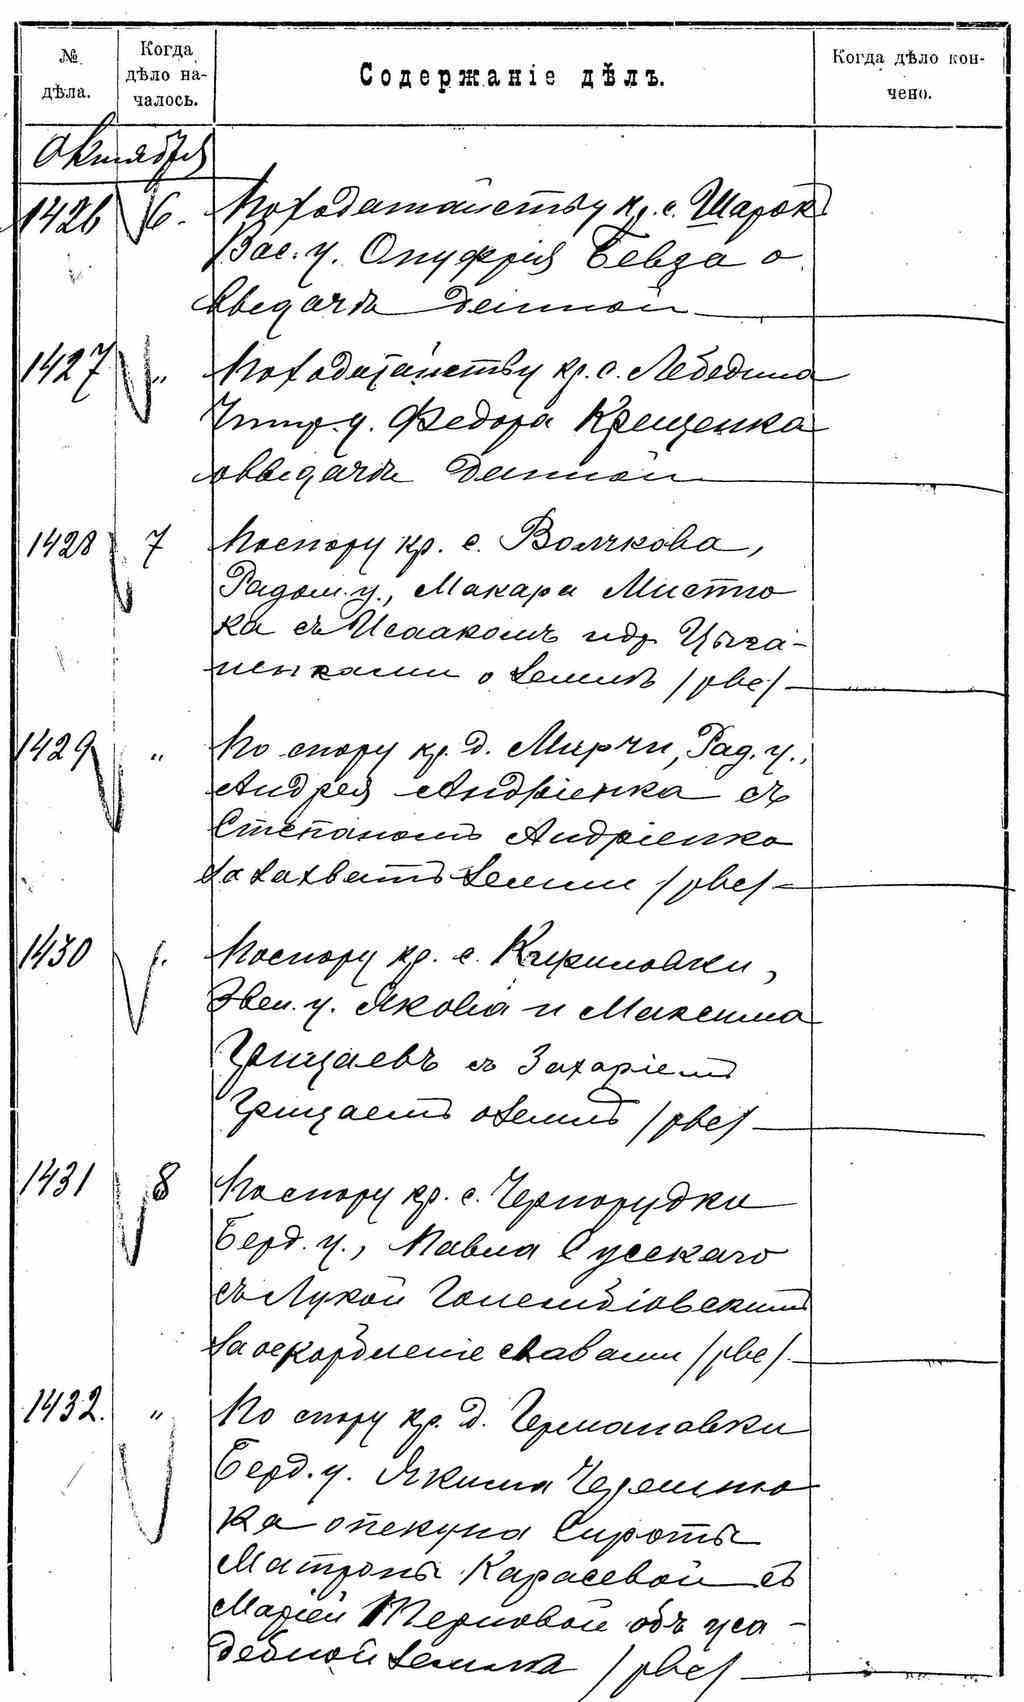 № дѣла.
Когда дѣло началось.
Содержаніе дѣлъ.
Когда дѣло кончено.
Октября
1426 6. По ходатайству кр. с. Шарок
Вас. у. Онуфрія Бевза о
выдачѣ данной
1427 „ По ходатайству кр. с. Лебедина
Чигир. у. Федора Крещенка
о выдачѣ данной
1428 7 По спору кр. с. Волчкова,
Радом. у., Макара Мистю
ка съ Исаакомъ и др Цыга-
ненками о землѣ /рве/
1429 „ По спору кр. д. Мирчи, Рад. у.,
Андрея Андріенка съ
Степаномъ Андріенко
за захватъ земли /рве/
1430 „ По спору кр. с. Кириловки,
Звен. у. Якова и Максима
Грицаевъ съ Захаріемъ
Грицаемъ о землѣ /рве/
1431 8 По спору кр. с. Чернорудки
Берд. у., Павла Сусскаго
съ Лукой
за оскорбленіе словами /рве/
1432. „ По спору кр. д. Германовки
Берд. у. Якима Черешню
ка опекуна сироты
Матроны Карасевой съ
Маріей Терновой объ уса-
дебной землѣ /рве/